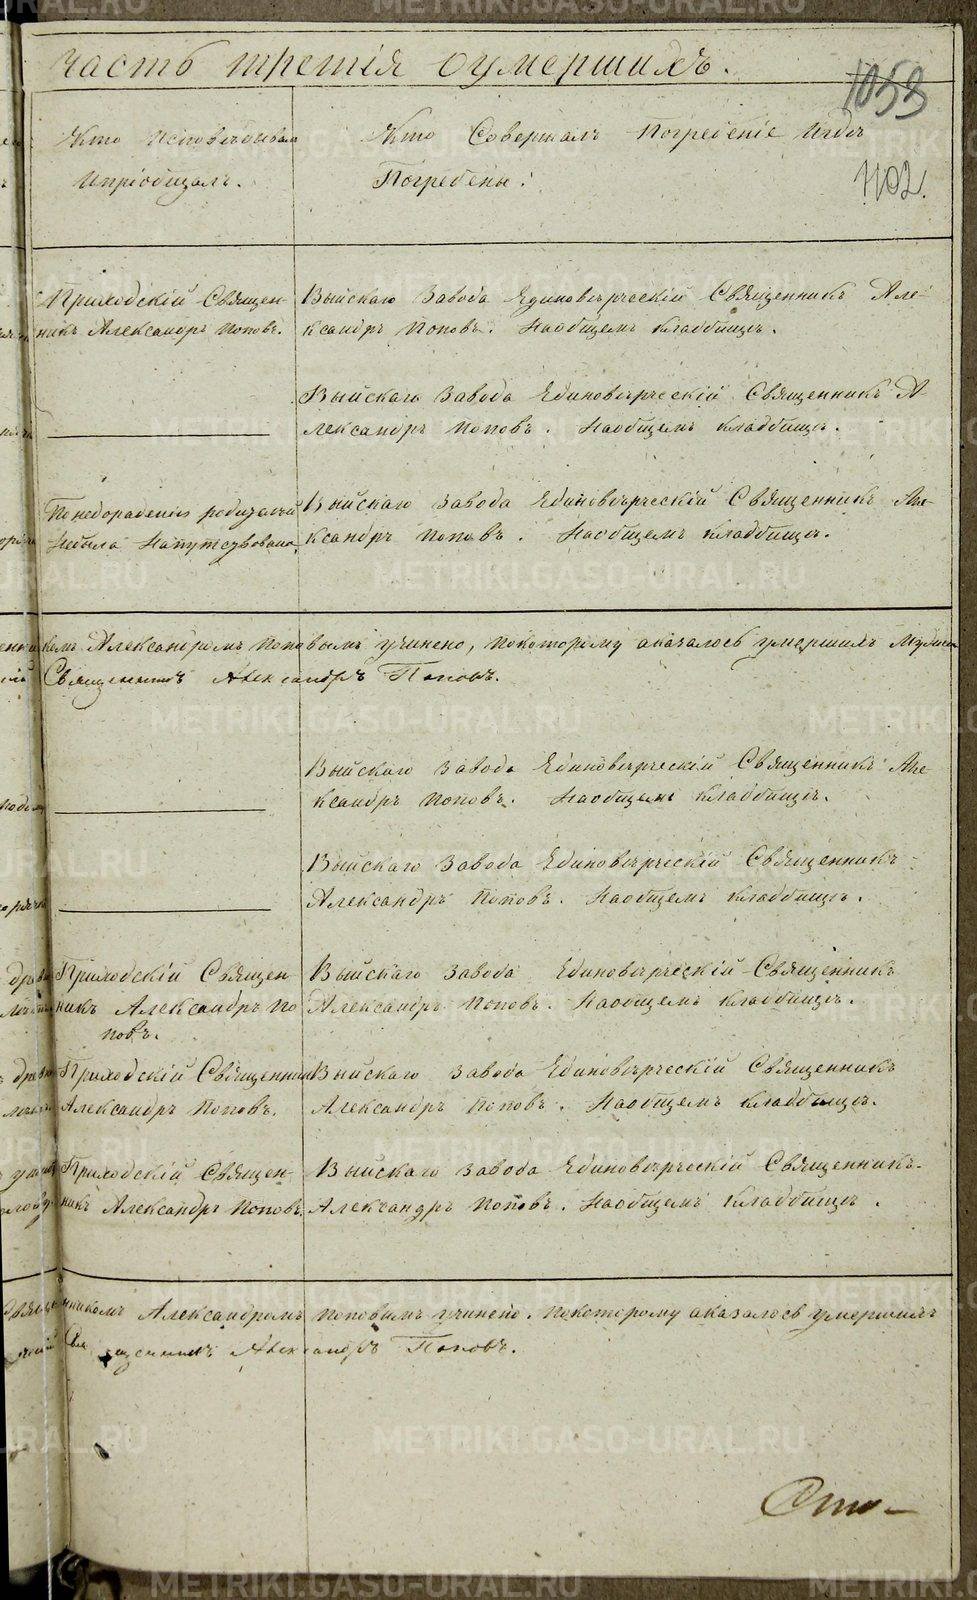 часть третія оумершихъ.
1058
Кто Исповѣдывалъ
Ипріобщалъ.
Кто Совершалъ Погребеніе Игдѣ
Погребены.
1102.
Приходскій Священ-
никъ Александръ Поповъ.
Выйскаго Завода Единовѣрческій Священникъ Але-
ксандръ Поповъ. Наобщемъ кладбищѣ.
Выйскаго Завода Единовѣрческій Священникъ А-
лександръ Поповъ. Наобщемъ кладбищѣ.
родителей
Небыла Напутствована.
Выйскаго Завода Единовѣрческій Священникъ Але-
ксандръ Поповъ. Наобщемъ кладбищѣ.
Александромъ Поповымъ учинено, покоторому оказалось умершихъ
Священникъ Александръ Поповъ.
Выйскаго Завода Единовѣрческій Священникъ Але-
ксандръ Поповъ. Наобщемъ кладбищѣ.
Выйскаго Завода Единовѣрческій Священникъ
Александръ Поповъ. Наобщемъ кладбищѣ.
Приходскій Священ-
никъ Александръ По
повъ.
Выйскаго Завода Единовѣрческій Священникъ
Александръ Поповъ. Наобщемъ кладбищѣ.
Приходскій Священникъ
Александръ Поповъ.
Выйскаго Завода Единовѣрческій Священникъ
Александръ Поповъ. Наобщемъ кладбищѣ.
Приходскій Священ-
никъ Александръ Поповъ.
Выйскаго Завода Единовѣрческій Священникъ
Александръ Поповъ. Наобщемъ кладбищѣ.
Александромъ Поповымъ учинено. покоторому оказалось умершихъ
Александръ Поповъ.
METRIKI.GASO-URAL.RU